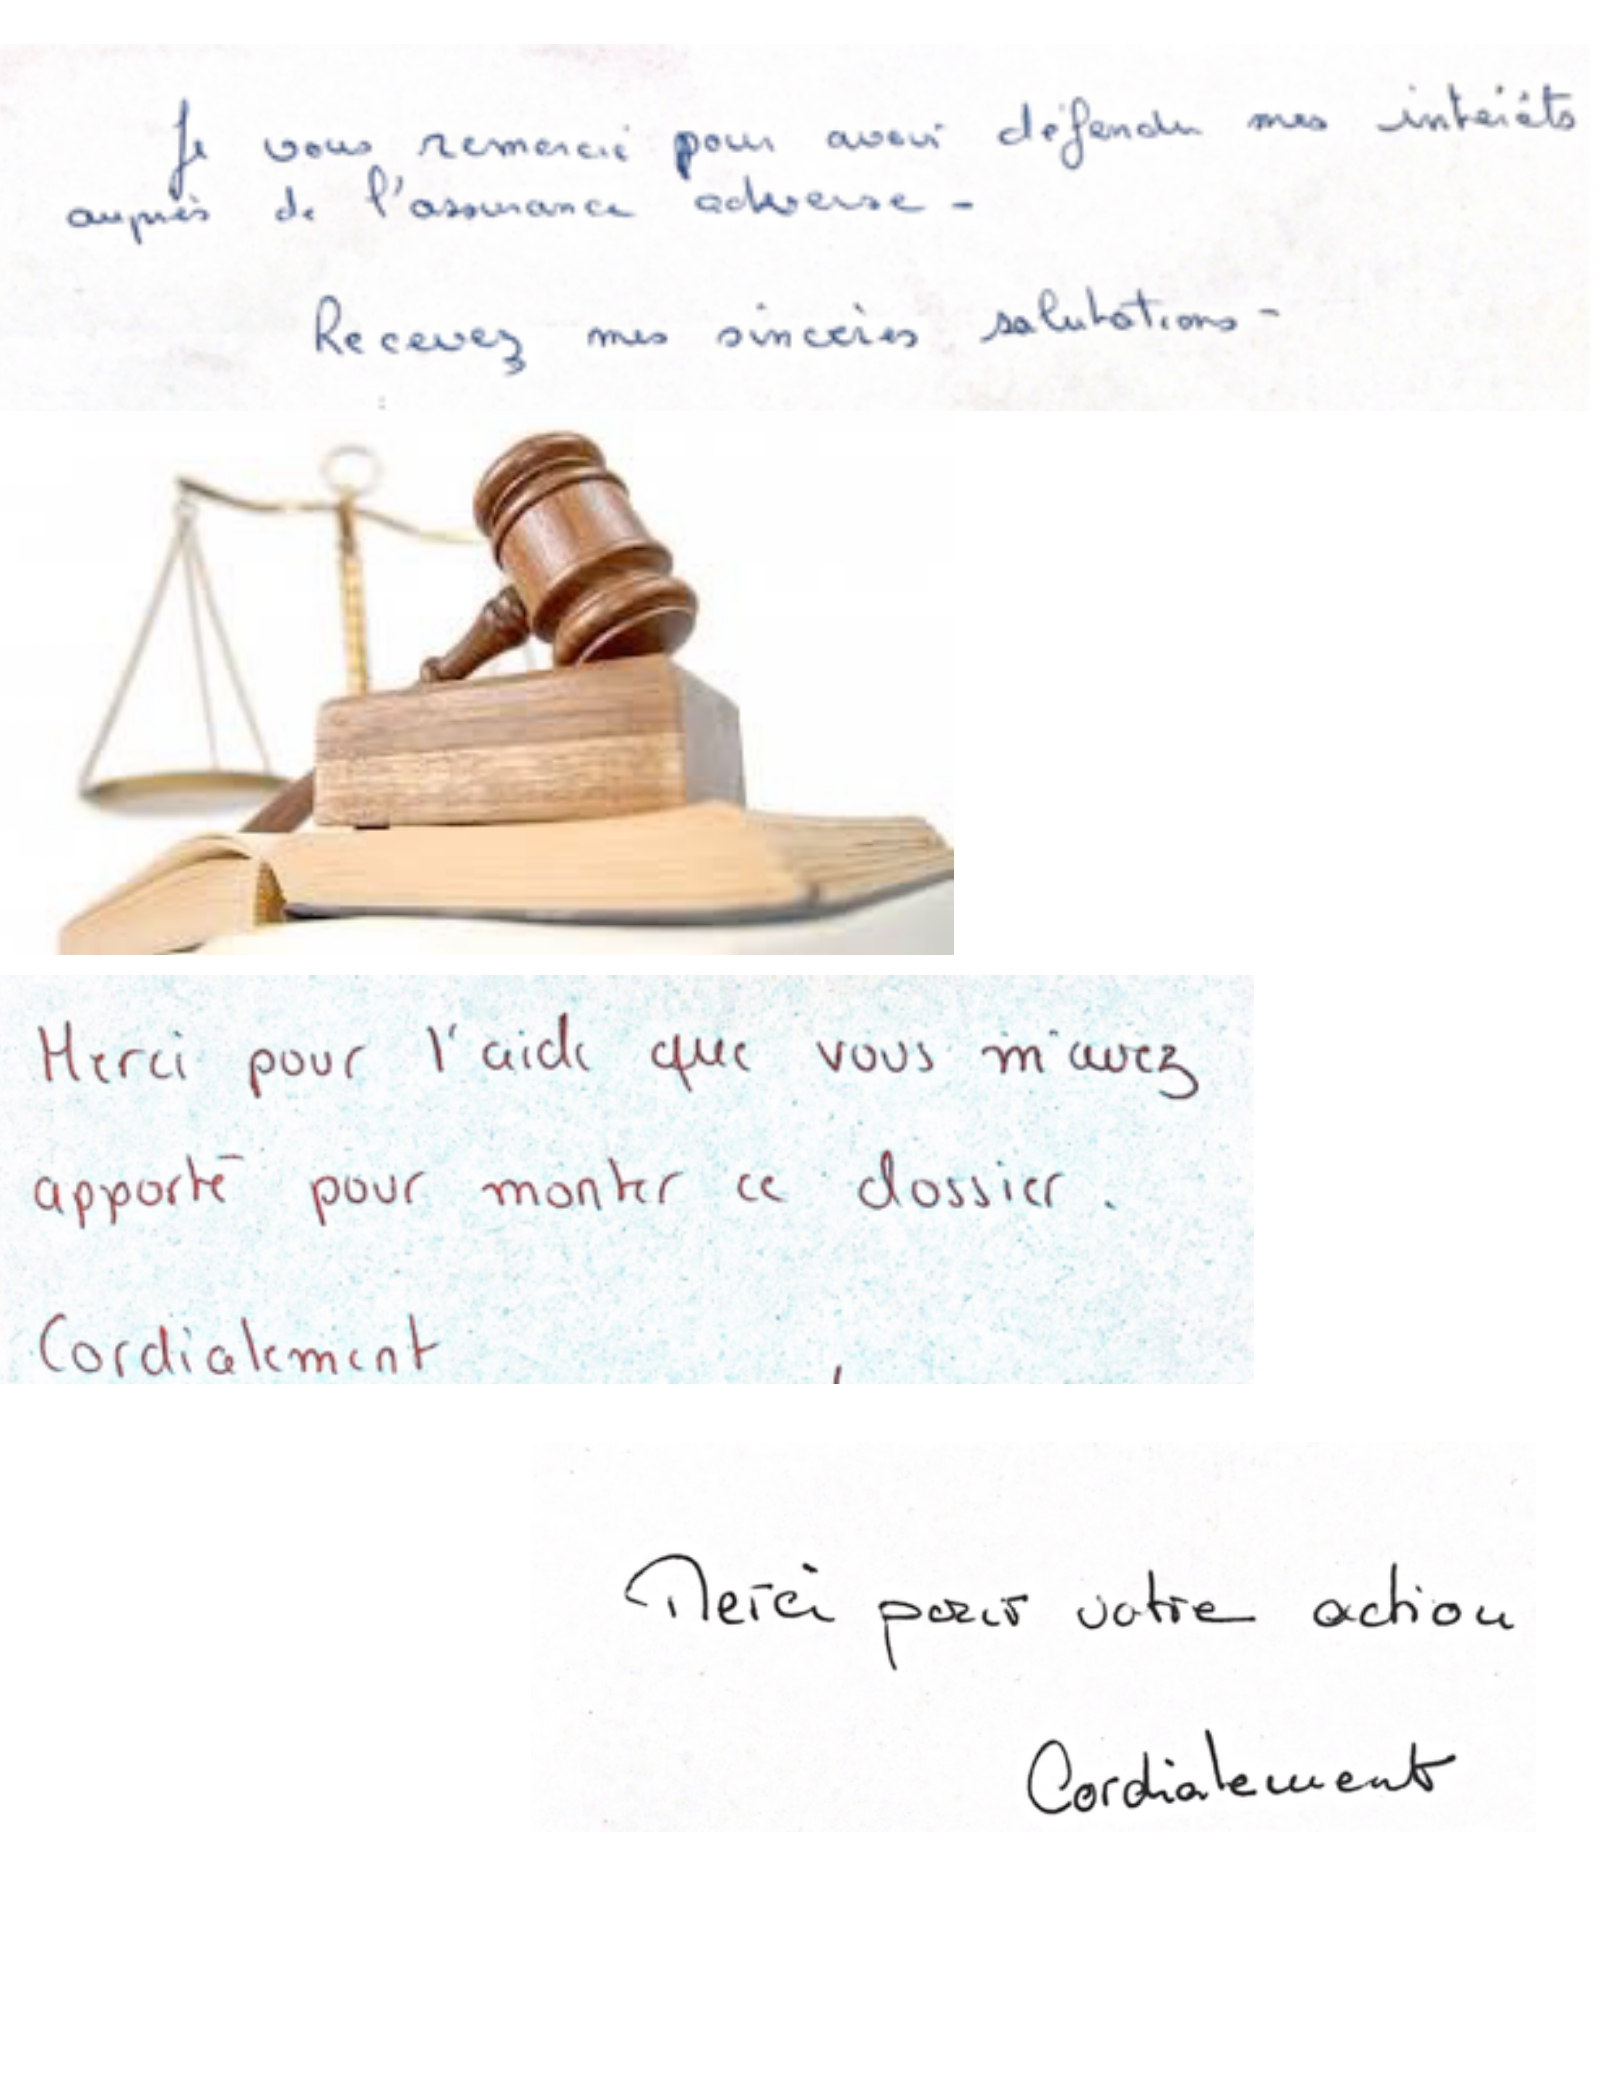 Je vous remercie pour avoir défendu mes intérêts
auprès de l'assurance adverse -
Recevez mes sincères salutations -
Merci pour l'aide que vous m'avez
apporté pour monter ce dossier.
Cordialement
Merci pour votre action
Cordialement